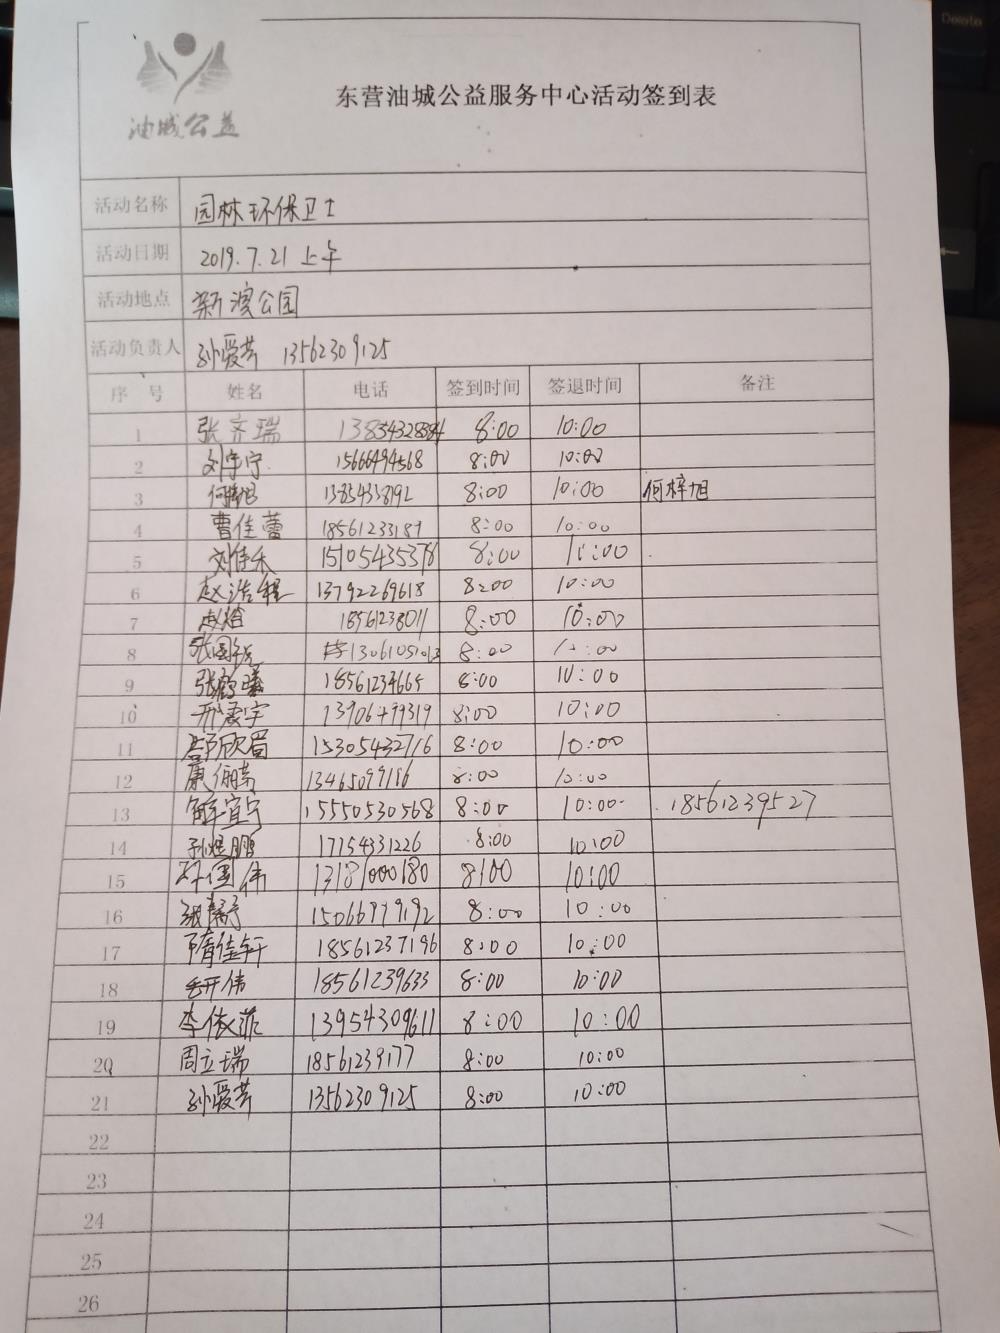 Delete
油城公益
东营油城公益服务中心活动签到表
活动名称 园林环保卫士
活动日期 2019.7.21 上午
活动地点 新湾公园
活动负责人 孙爱芳 13562309125
序 号 姓名 电话 签到时间 签退时间 备注
1 张齐瑞 8:00 10:00
2 刘宇宁 15666494568 8:00 10:00
3 何梓旭 13854338192 8:00 10:00 何梓旭
4 曹佳蕾 18561233187 8:00 10:00
5 刘佳禾 15105435378 8:00 10:00
6 赵浩程 13792269618 8:00 10:00
7 18561238011 8:00 10:00
8 8:00 10:00
9 18561234665 8:00 10:00
10 8:00 10:00
11 15305432716 8:00 10:00
12 8:00 10:00
13 解宜宁 15550530568 8:00 10:00 18561239527
14 孙煜鹏 17154331226 8:00 10:00
15 13181000180 8:00 10:00
16 15066979192 8:00 10:00
17 隋佳轩 18561237196 8:00 10:00
18 18561239633 8:00 10:00
19 李依菲 13954309611 8:00 10:00
20 周立瑞 18561239177 8:00 10:00
21 孙爱芳 13562309125 8:00 10:00
22
23
24
25
26